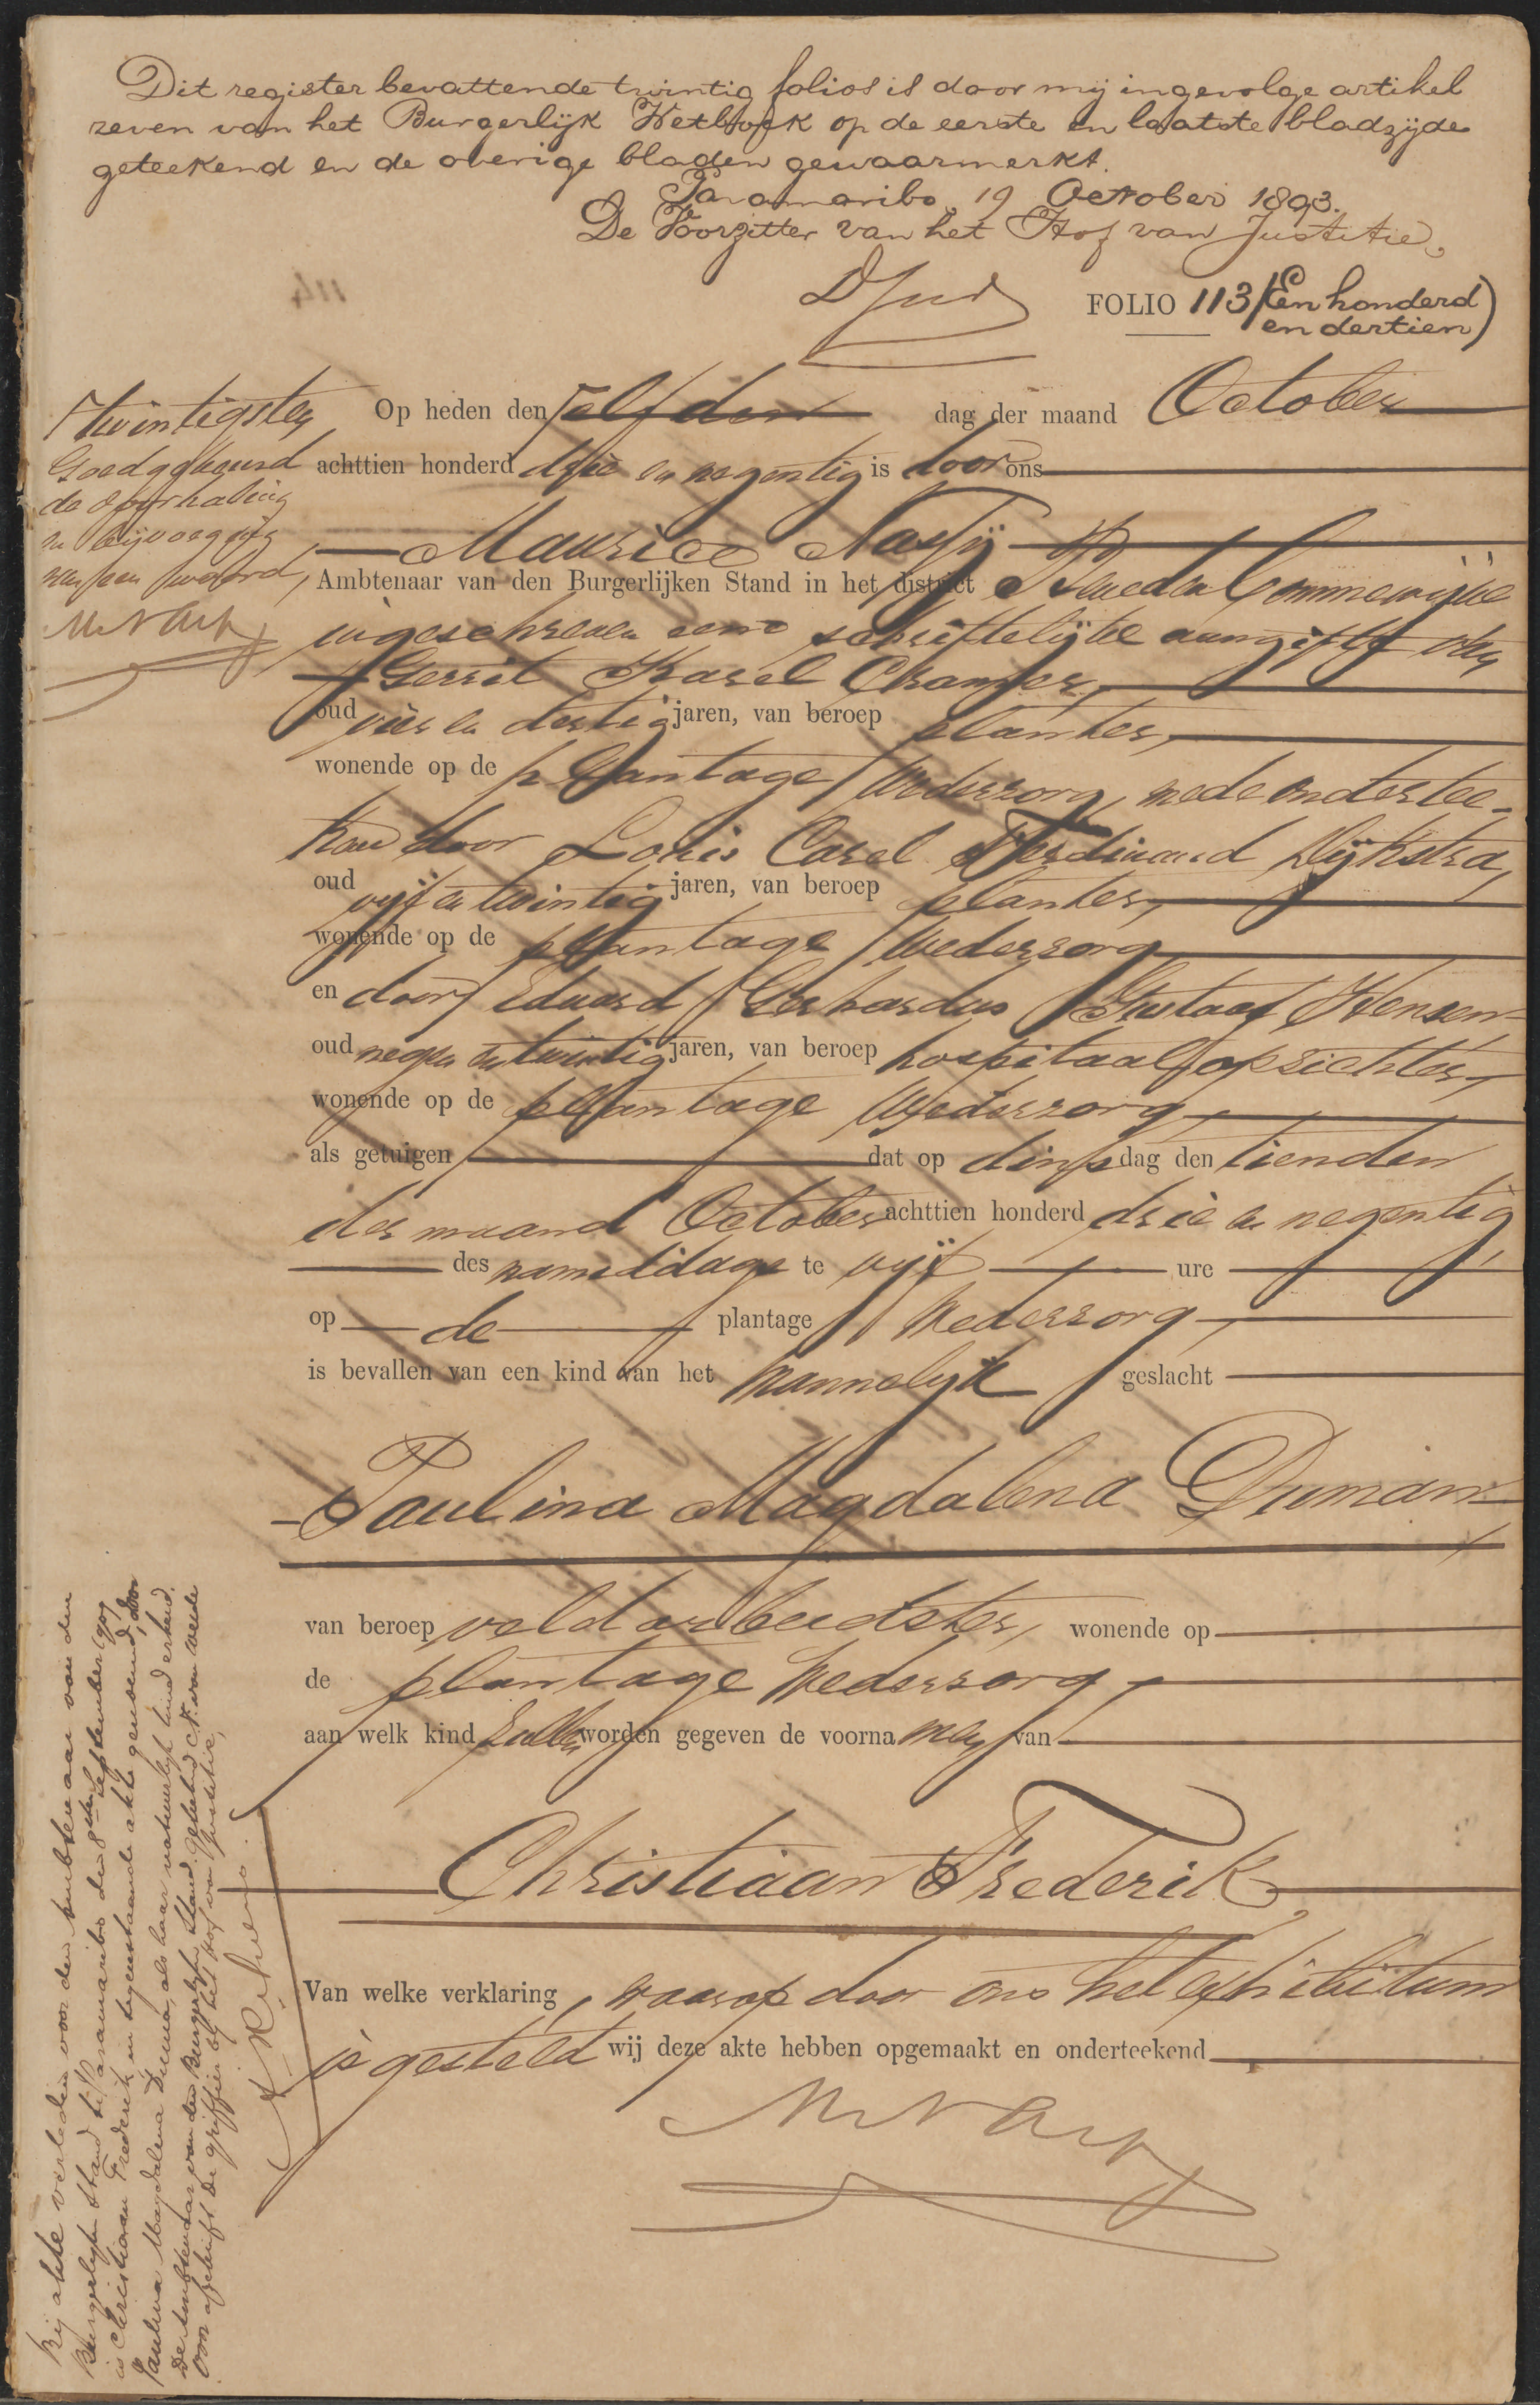 Dit register bevattende twintig folios is door mij ingevolge artikel
zeven van het Burgerlijk Wetboek op de eerste en laatste bladzijde
geteekend en de overige bladen gewaarmerkt.
Paramaribo, 19 October 1893.
De Voorzitter van het Hof van Justitie,
114
FOLIO 113 (Een honderd
en dertien)
twintigsten
Goedgekeurd
de doorhaling
en bijvoeging
van een woord,
Op heden den elfden dag der maand October
achttien honderd drie en negentig is door ons
Maurice Nassÿ
Ambtenaar van den Burgerlijken Stand in het district Beneden Commewijne
ingeschreven eene schriftelijke aangifte van
Gerrit Karel Cramer,
oud vier en dertig jaren, van beroep planter,
wonende op de plantage Wederzorg, mede onderstee-
kend door Louis Carel Ferdinand Dijkstra,
oud vijf en twintig jaren, van beroep planter,
wonende op de plantage Wederzorg
en door Eduard Gerhardus Gustaaf Hensen
oud negen en twintig jaren, van beroep hospitaalopzichter,
wonende op de plantage Wederzorg,
als getuigen dat op dinsdag den tienden
der maand October achttien honderd drie en negentig
des namiddags te vijf ure
op de plantage Wederzorg,
is bevallen van een kind van het mannelijk geslacht
Paulina Magdalena Duman
van beroep veldarbeidster, wonende op
de plantage Wederzorg,
aan welk kind zullen worden gegeven de voornamen van
Christiaan Frederik,
Van welke verklaring, waarop door ons het exhibitum
is gesteld wij deze akte hebben opgemaakt en onderteekend
Bij akte verleden voor den ambtenaar van den
Burgerlijken Stand te Paramaribo den 8sten September 1909
is Christiaan Frederik in tegenstaande akte genoemd, door
Paulina Magdalena Duman, als haar natuurlijk kind erkend.
De Ambtenaar van den Burgerlijken Stand. geteekend
Voor afschrift De griffier bij het Hof van Justitie,